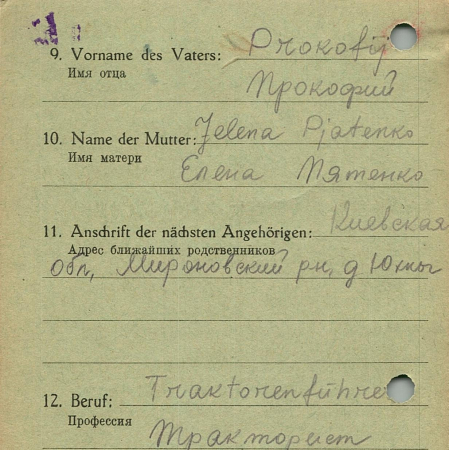 9. Vorname des Vaters: Prokofij
Имя отца Прокофий
10. Name der Mutter: Jelena Pjatenko
Имя матери Елена Пятенко
11. Anschrift der nächsten Angehörigen: Киевская
Адрес ближайших родственников
обл, Мироновский рн, д
12. Beruf: Traktorenführer
Профессия Тракторист